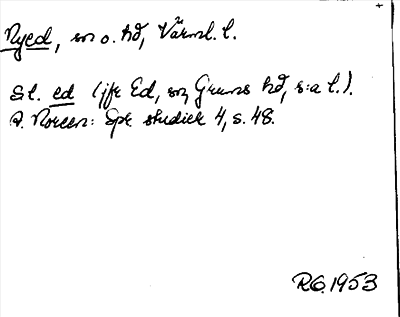 Nyed, sn o. hd, Värml. l.
St. ed (jfr Ed, sn, Grums hd, s:a l.).
A. Noreen: Spr. studier 4, s. 48.
R6.1953